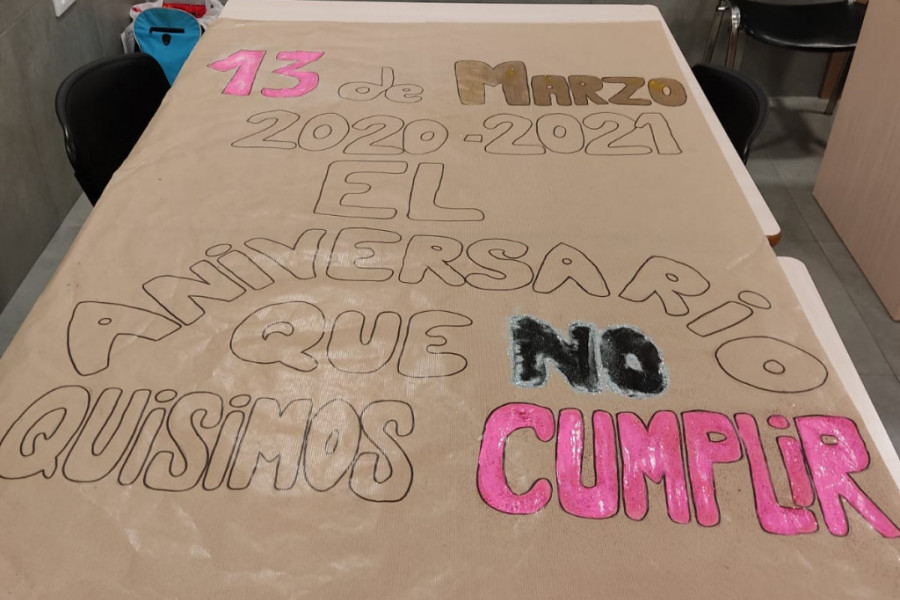 13 de MARZO
2020-2021
EL
ANiVERSARiO
QUE NO
QUiSiMOS CUMPLiR